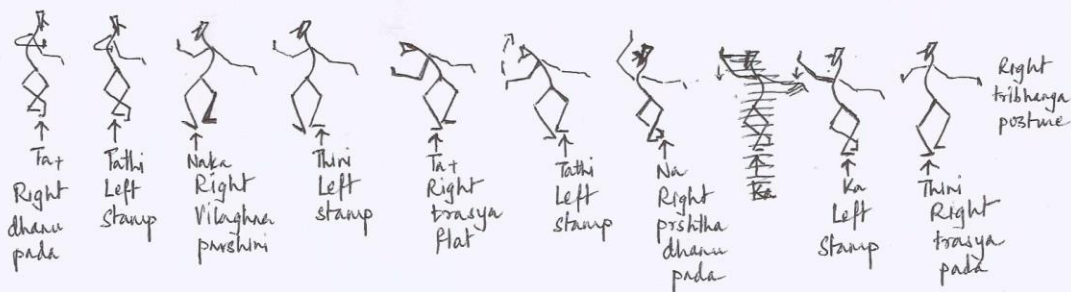 Ta+
Right
dhanu
pada
Tathi
Left
stamp
Naka
Right
Vilaghna
parshini
Thini
Left
stamp
Ta+
Right
trasya
flat
Tathi
Left
stamp
Na
Right
prshtha
dhanu
pada
Ka
Ka
Left
Stamp
Thini
Right
trasya
pada
Right
tribhanga
posture